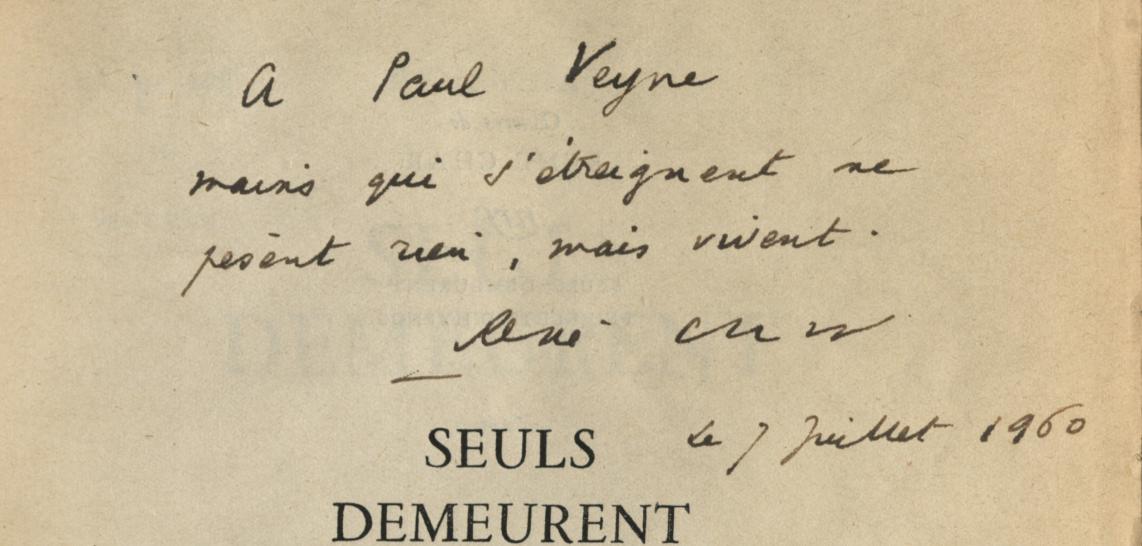 A Paul Veyne
mains qui s'étreignent ne
pesent rien, mais vivent.
René Char
le 7 Juillet 1960
SEULS
DEMEURENT